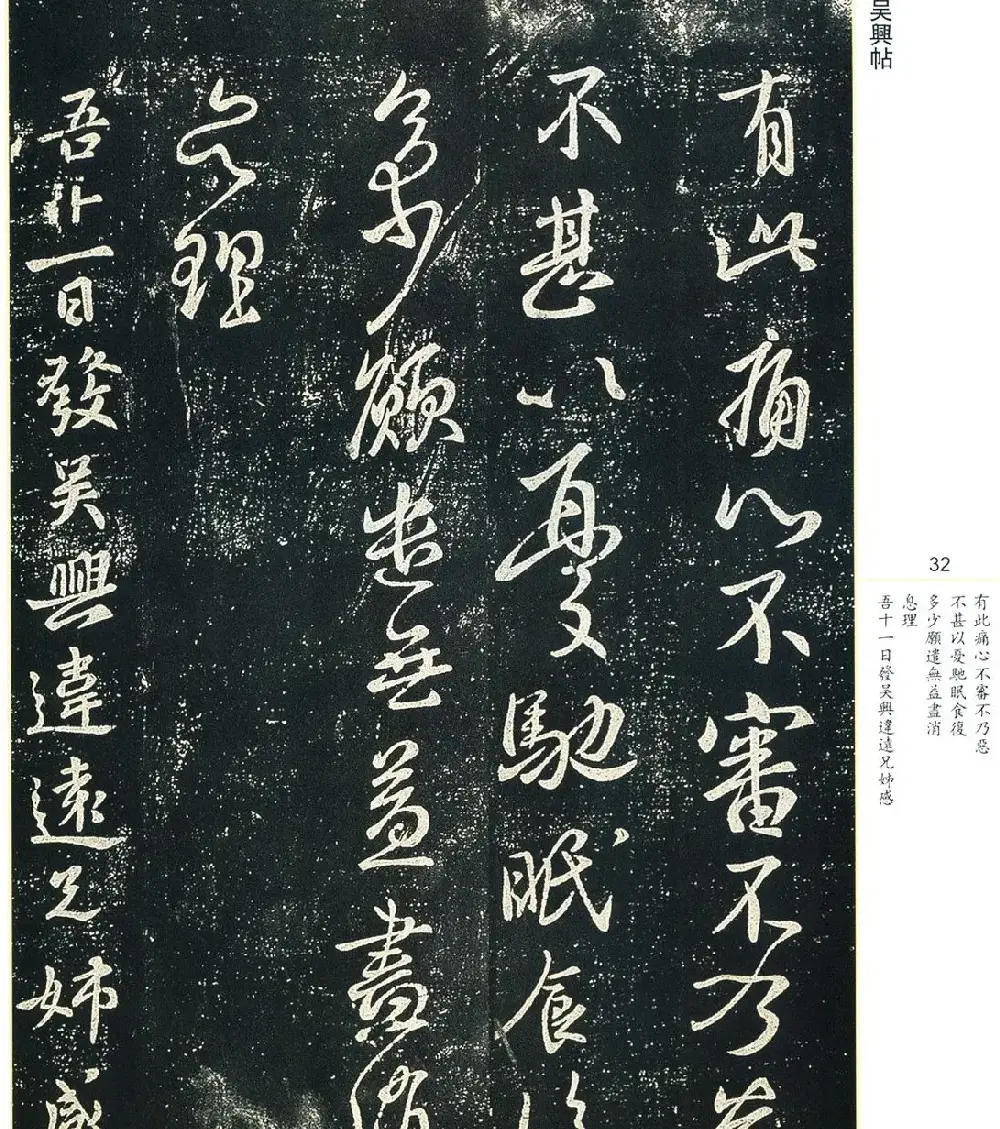 吳興帖
32
有此痛心不審不乃惡
不甚以憂馳眠食復
多少願遣無益盡消
息理
吾十一日發吳興違遠兄姊感
有此痛心不審不乃惡
不甚以憂馳眠食復
多少願遣無益盡消
息理
吾十一日發吳興違遠兄姊感